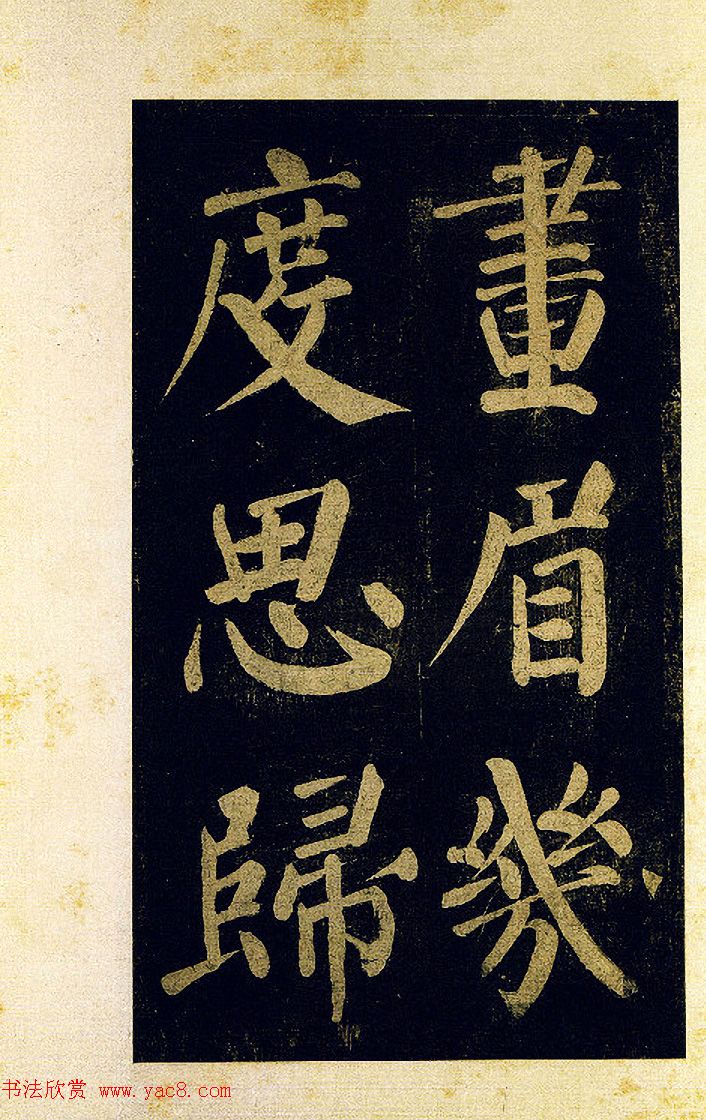 畫眉幾
度思歸
书法欣赏 www.yac8.com